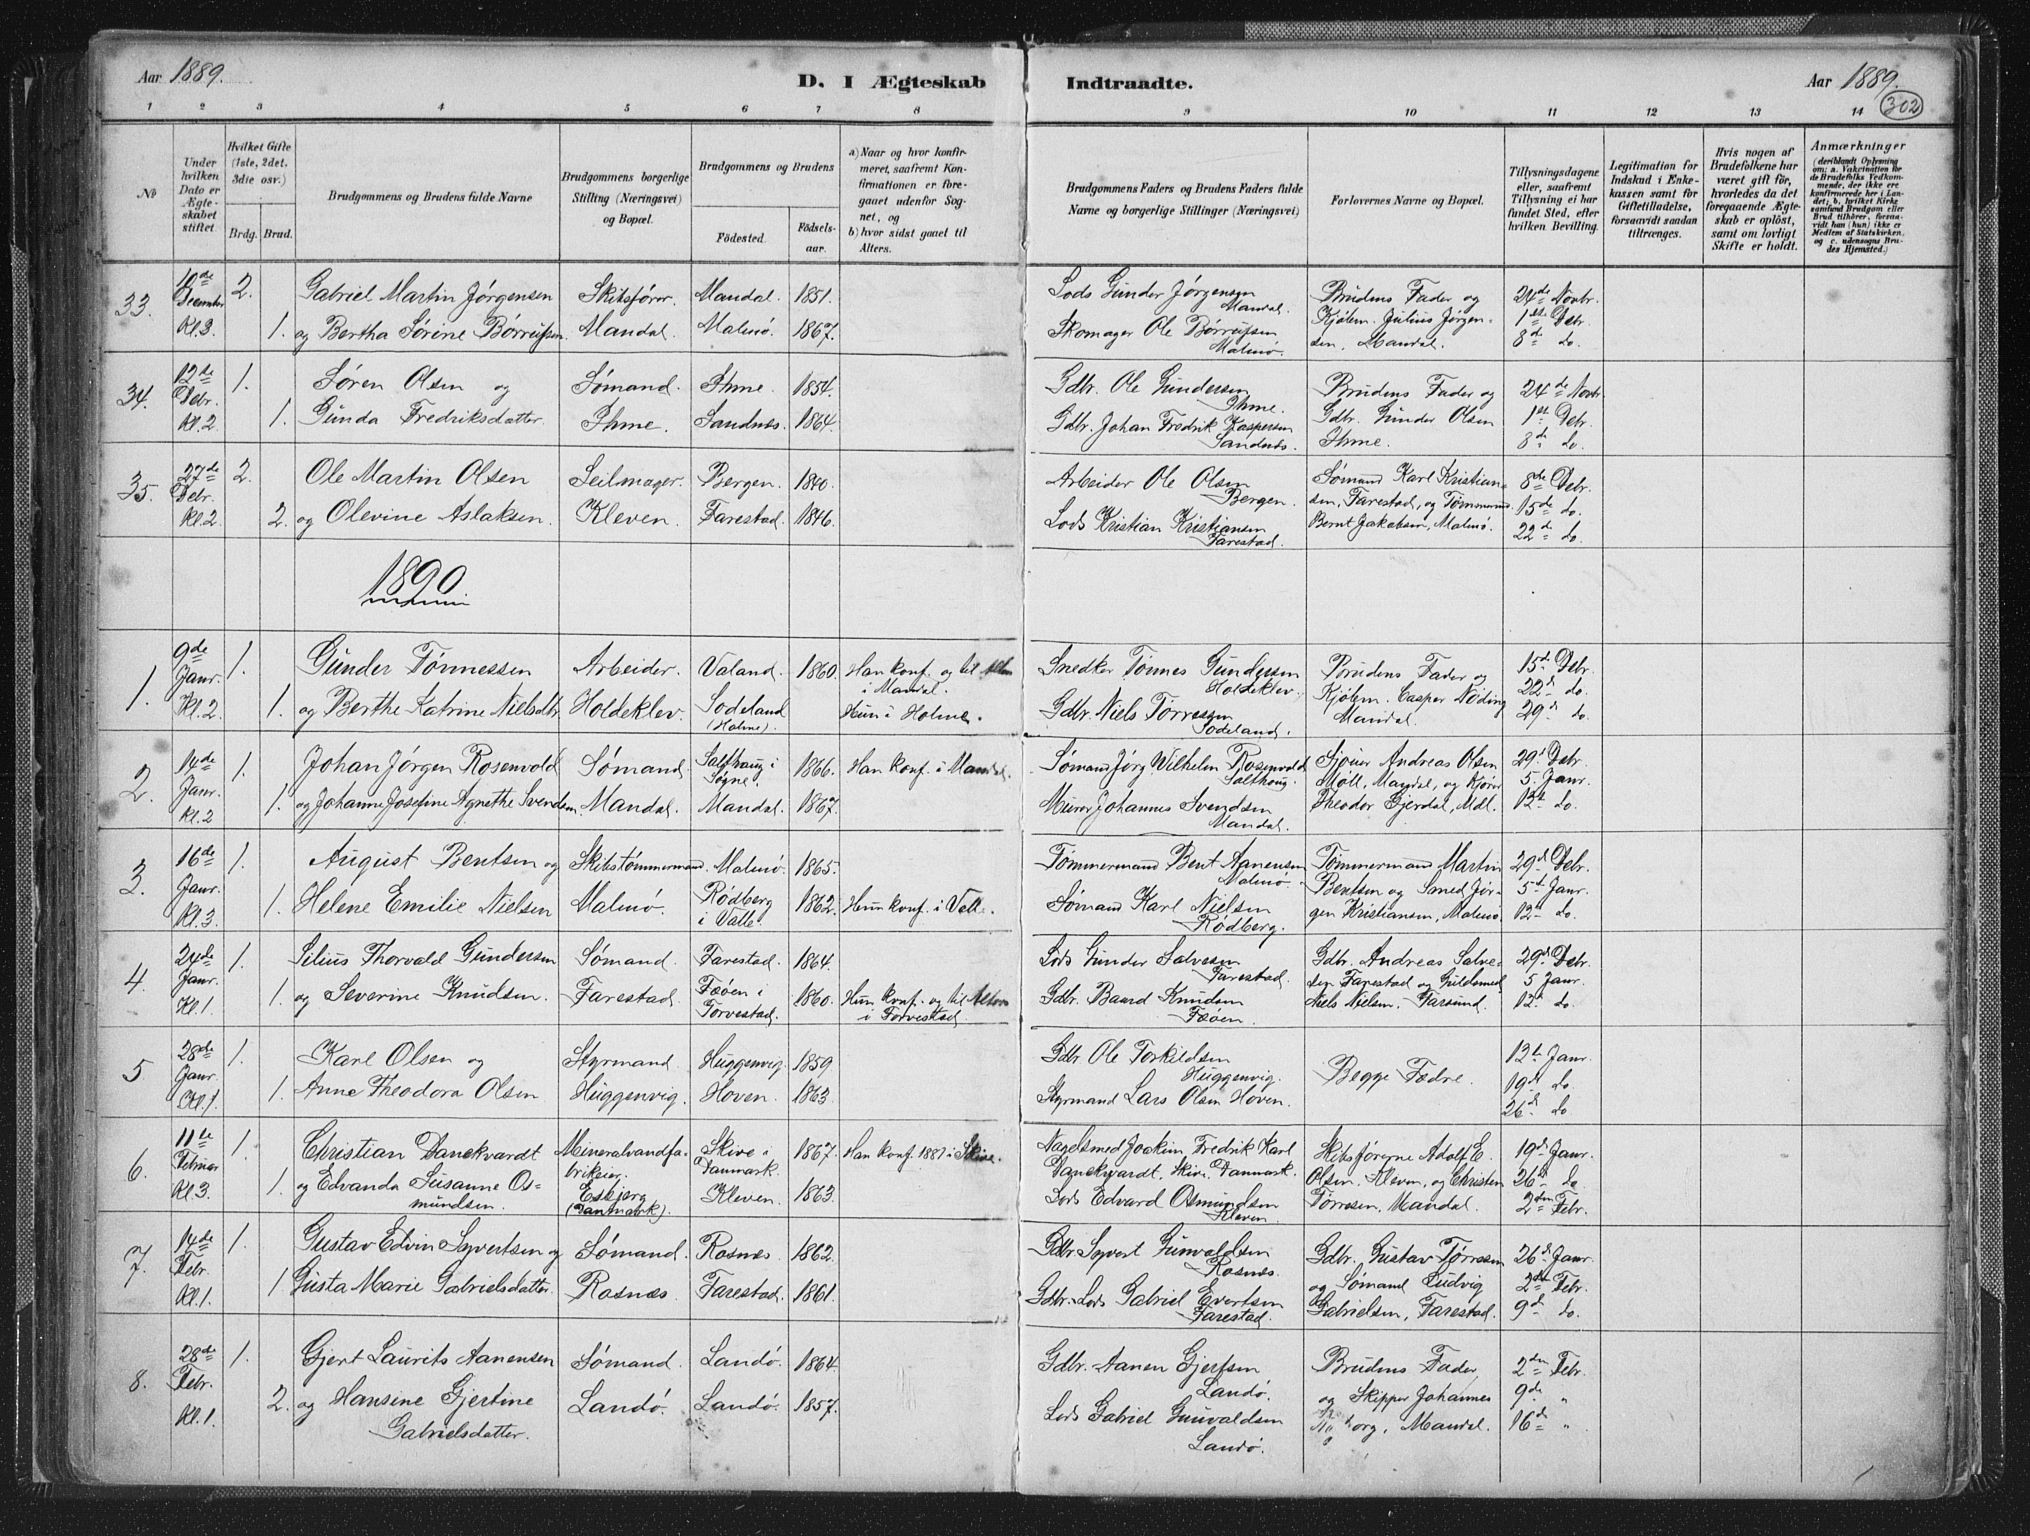 Aar 1889.
D. I Ægteskab Indtraadte.
Aar 1889.
302
1 2 3 4 5 6 7 8 9 10 11 12 13 14
No
Under hvilken Dato er Ægteskabet stiftet.
Hvilket Gifte (1ste, 2det. 3die osv.)
Brdg. Brud.
Brudgommens og Brudens fulde Navne
Brudgommens borgerlige Stilling (Næringsvei) og Bopæl.
Brudgommens og Brudens
Fødested.
Fødselsaar.
a) Naar og hvor konfirmeret, saafremt Konfirmationen er foregaaet udenfor Sognet, og
b) hvor sidst gaaet til Alters.
Brudgommens Faders og Brudens Faders fulde Navne og borgerlige Stillinger (Næringsvei)
Forlovernes Navne og Bopæl.
Tillysningsdagene eller, saafremt Tillysning ei har fundet Sted, efter hvilken Bevilling.
Legitimation for Indskud i Enkekassen samt for Giftetilladelse, forsaavidt saadan tiltrænges.
Hvis nogen af Brudefolkene har været gift før, hvorledes da det foregaaende Ægteskab er opløst, samt om lovligt Skifte er holdt.
Anmærkninger
(deriblandt Oplysning om: a. Vaccination for de Brudefolks Vedkommende, der ikke ere konfirmerede her i Landet; b. hvilket Kirkesamfund Brudgom eller Brud tilhører, forsaavidt han (hun) ikke er Medlem af Statskirken, og c. udensogns Brudes Hjemsted.)
33.
10de Decembr. Kl. 3.
2.
Gabriel Martin Jørgensen
Skibsfører.
Mandal.
1851.
Lods Gunder Jørgensen
Mandal.
Brudens Fader og
24de Novbr.
1.
og Bertha Sørine Børreysen.
Mandal.
Malmø.
1867.
Skomager Ole Børreysen
Malmø.
Kjøbm. Julius Jørgensen, Mandal.
1ste Debr.
8de do.
34.
12de Debr. Kl. 2
1.
Søren Olsen og
Sømand.
Ihme.
1854.
Gdbr. Ole Gundersen
Ihme.
Brudens Fader og
24de Novbr
1.
Gunda Fredriksdatter.
Ihme.
Sandnæs.
1864.
Gdbr. Johan Fredrik Kaspersen
Sandnæs.
Gdbr. Gunder Olsen
Ihme.
1ste Debr.
8de do.
35.
27de Debr. Kl. 2
2.
Ole Martin Olsen
Seilmager.
Bergen.
1840.
Arbeider Ole Olsen
Bergen.
Sømand Karl Kristiansen, Farestad, og Tømmermd.
8de Debr.
2.
og Olevine Aslaksen.
Kleven.
Farestad.
1846.
Lods Kristian Kristiansen
Farestad.
Bernt Jakobsen, Malmø.
15de do.
22de do.
1890
1.
9de Janr. Kl. 2.
1.
Gunder Tønnessen
Arbeider.
Valand.
1860.
Han konf. og til Alters
i Mandal.
Snedker Tønnes Gundersen
Holdeklev.
Brudens Fader og
15de Debr.
1.
og Berthe Katrine Nielsdtr.
Holdeklev.
Sodeland
(Holme).
Hun i Holme.
Gdbr. Niels Tørresen
Sodeland.
Kjøbm. Casper Nøding
Mandal.
22de do.
29de do.
2.
14de Janr. Kl. 2
1.
Johan Jørgen Rosenvold
Sømand.
Salthaug i
Søgne.
1866.
Han konf. i Mandal.
Sømand Jørg. Wilhelm Rosenvold
Salthaug.
Sjouer Andreas Olsen
29de Debr.
1.
og Johanne Josefine Agnethe Svendsen.
Mandal.
Mandal.
1867.
Murer Johannes Svendsen
Mandal.
Møll, Mandal, og
Theodor Gjerdal, Mdl.
5. Janr.
12te do.
3.
16de Janr. Kl. 3
1.
August Bentsen og
Skibstømmermand.
Malmø.
1865.
Tømmermand Bent Aanensen
Malmø.
Tømmermand Martin
29de Debr.
1.
Helene Emilie Nielsen
Malmø.
Rødberg
i Valle.
1862.
Hun konf. i Valle.
Sømand Karl Nielsen
Rødberg.
Bentsen og Smed Jørgen Kristiansen, Malmø
5te Janr.
12te do.
4.
24de Janr. Kl. 1
1.
Silius Thorvald Gundersen
Sømand.
Farestad.
1864.
Lods Gunder Salvesen
Farestad.
Gdbr. Andreas Salvesen Farestad og Guldsmed
29de Debr.
1.
og Severine Knudsen.
Farestad.
Fæøen i
Torvestad.
1860.
Hun konf. og til Alters
i Torvestad.
Gdbr. Baard Knudsen
Fæøen.
Niels Nielsen, Farsund.
5 Janr.
12te do.
5.
28de Janr. Kl. 1
1.
Karl Olsen og
Styrmand
Huggenvig.
1859
Gdbr Ole Torkildsen
Huggenvig.
Begge Fædre.
12te Janr.
1.
Anne Theodora Olsen
Huggenvig.
Hoven.
1863.
Styrmand Lars Olsen Hoven.
19de do
26de do
6.
11te Februar Kl. 3.
1.
Christian Danckvardt
Mineralvandfabrikeier.
Skive i
Danmark.
1867.
Han konf. 1881 i Skive.
Nagelsmed Joakim Fredrik Karl
Danckvardt, Skive, Danmark.
Skibsførerne Adolf E.
19de Janr.
1.
og Edvanda Susanne Osmundsen.
Esbjerg
(Danmark).
Kleven.
1863.
Lods Edvard Osmundsen
Kleven.
Olsen, Kleven, og Christen
Tørresen, Mandal.
26de do
2den Febr.
7.
14de Febr. Kl. 1.
1.
Gustav Edvin Syvertsen og
Sømand.
Rosnæs.
1862.
Gdbr. Syvert Gunvaldsen
Rosnæs.
Gdbr. Gustav Tørresen
26de Janr.
1
Gusta Marie Gabrielsdatter.
Rosnæs.
Farestad.
1861.
Gdbr. Lods Gabriel Evertsen
Farestad.
og Sømand Ludvig
Gabrielsen, Farestad.
2den Febr.
9de do.
8.
28de Febr. Kl. 1.
1.
Gjert Laurits Aanensen
Sømand.
Landø.
1864.
Gdbr. Aanen Gjertsen
Landø.
Brudens Fader
2den Febr.
2.
og Hansine Gjertine
Gabrielsdatter.
Landø.
Landø.
1857.
Lods Gabriel Gunvaldsen
Landø.
og Skipper Johannes
Mandal.
9de "
16de "